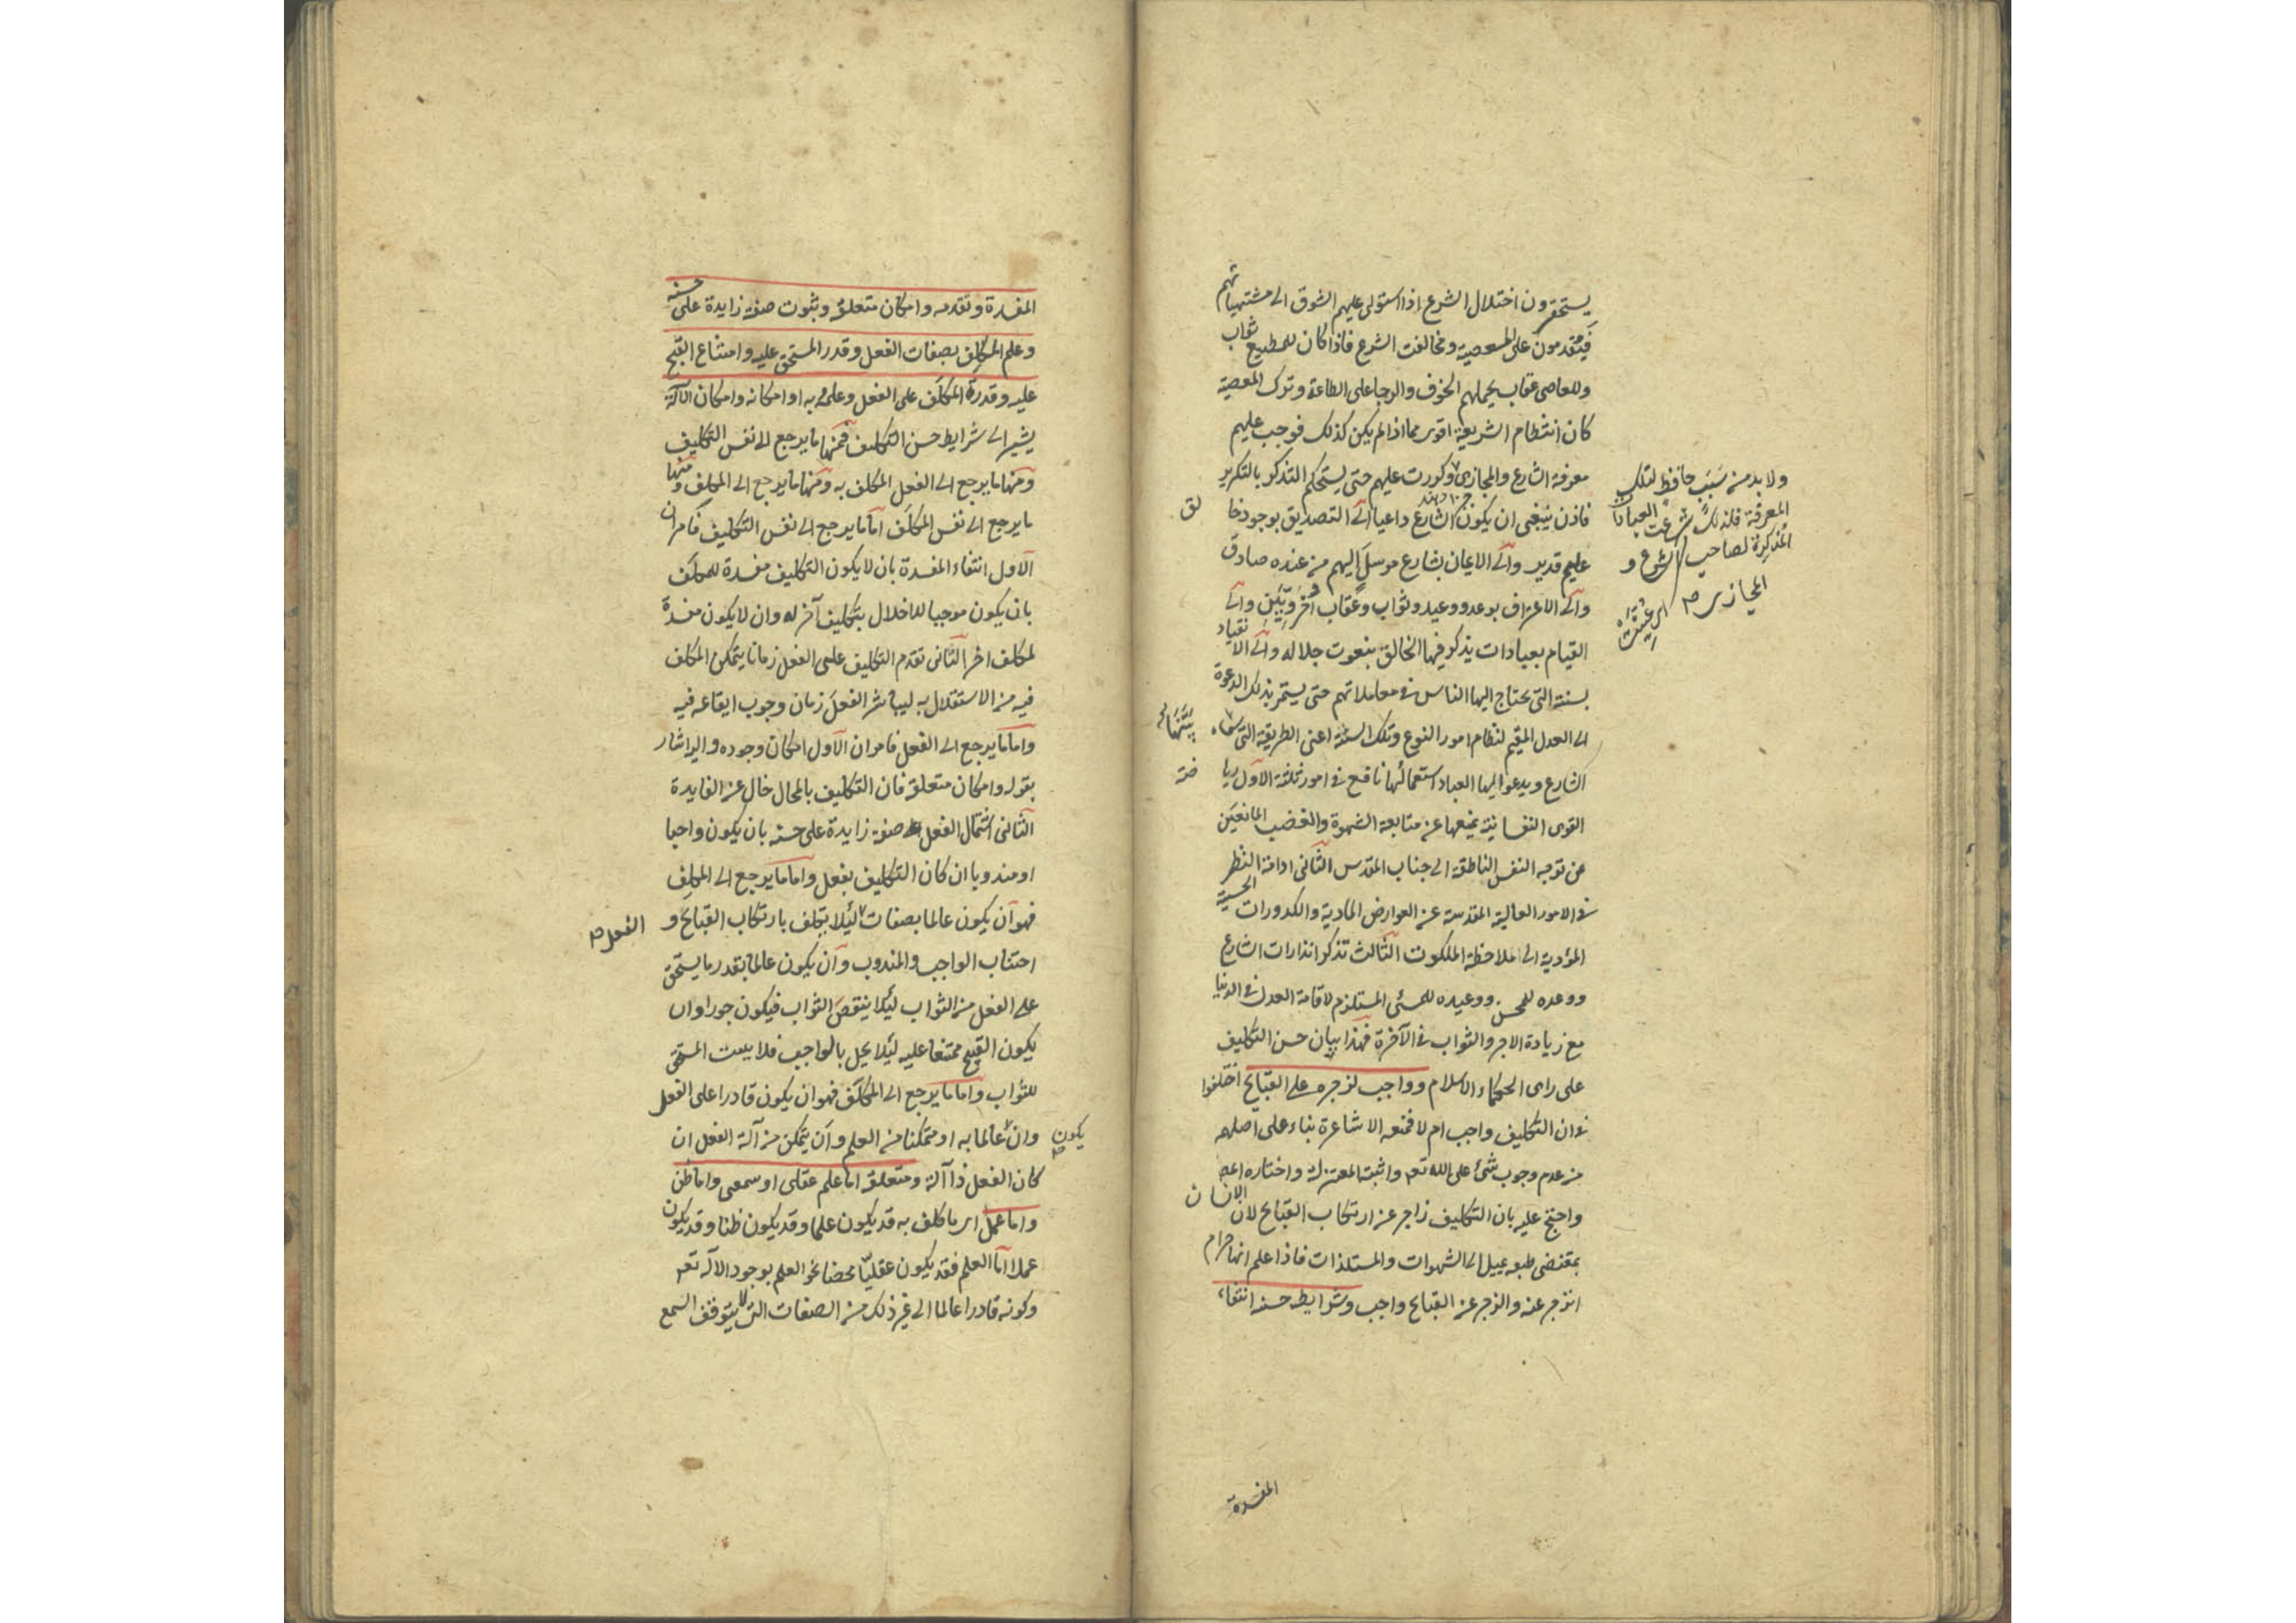 يستحقرون اختلال الشرع اذا استولى عليهم الشوق الى مشتهياتهم
فيقدمون على المعصية ومخالفت الشرع فاذا كان للمطيع ثواب
وللعاصى عقاب يحملهم الخوف والرجا على الطاعة وترك المعصية
كان انتظام الشريعة اقوى مما اذا لم يكن كذلك فوجب عليهم
معرفة الشارع والمجازى وكورت عليهم حتى يستحكم التذكر بالتكرير
ولا بد من سبب حافظ لتلك
المعرفة فلذلك شرعت العبادات
المذكرة لصاحب الشرع و
المجازى صح
فاذن ينبغى ان يكون الشارع داعيا الى التصديق بوجود خالق
عليم قدير والى الايمان بشارع مرسل اليهم من عنده صادق
والى الاعتراف بوعد ووعيد وثواب وعقاب اخرويين والى
القيام بعبادات يذكر فيها الخالق بنعوت جلاله والى الانقياد
لسنته التى يحتاج اليها الناس فى معاملاتهم حتى يستمر بذلك الدعوة
الى العدل المقيم لنظام امور النوع وتلك السنة اعنى الطريقة التى
الشارع ويدعو اليها العباد استعمالها نافع فى امور ثلثة الاول رياضة
القوى النفسانية بمنعها عن متابعة الشهوة والغضب المانعين
عن توجه النفس الناطقة الى جناب المقدس الثانى ادامة النظر
فى الامور العالية المقدسة عن العوارض المادية والكدورات الحسية
المؤدية الى ملاحظة الملكوت الثالث تذكر انذارات الشارع
ووعده للمحسن ووعيده للمسئ المستلزم لاقامة العدل فى الدنيا
مع زيادة الاجر والثواب فى الآخرة فهذا بيان حسن التكليف
على راى الحكماء الاسلام وواجب لزجره على القبائح اختلفوا
فى ان التكليف واجب ام لا فمنعه الاشاعرة بناء على اصلهم
من عدم وجوب شئ على الله تعه واثبته المعتزلة واختاره المصه
واحتج عليه بان التكليف زاجر عن ارتكاب القبائح لان الانسان
بمقتضى طبعه يميل الى الشهوات والمستلذات فاذا علم انها حرام
انزجر عنه والزجر عن القبائح واجب وشرايط حسنه انتفاء
المفسدة
المفسدة وتقدمه وامكان متعلقه وثبوت صفة زايدة على حسنه
وعلم المكلف بصفات الفعل وقدر المستحق عليه وامتناع القبيح
عليه وقدرة المكلف على الفعل وعلمه به او امكانه وامكان الآلة
يشير الى شرايط حسن التكليف فمنها ما يرجع الى نفس التكليف
ومنها ما يرجع الى الفعل المكلف به ومنها ما يرجع الى المكلف ومنها
ما يرجع الى نفس المكلف اما ما يرجع الى نفس التكليف فامران
الاول انتفاء المفسدة بان لا يكون التكليف مفسدة للمكلف
بان يكون موجبا للاخلال بتكليف آخر له وان لا يكون مفسدة
لمكلف اخر الثانى تقدم التكليف على الفعل زمانا يتمكن المكلف
فيه من الاستقلال به ليباشر الفعل زمان وجوب ايقاعه فيه
واما ما يرجع الى الفعل فامران الاول امكان وجوده واليه اشار
بقوله وامكان متعلقه فان التكليف بالمحال خال عن الفايدة
الثانى اشتمال الفعل على صفة زايدة على حسنه بان يكون واجبا
او مندوبا ان كان التكليف بفعل واما ما يرجع الى المكلف
فهو ان يكون عالما بصفات لئلا يكلف بارتكاب القبائح و
الفعل صح
اجتناب الواجب والمندوب وان يكون عالما بقدر ما يستحق
على الفعل من الثواب لئلا ينتقص الثواب فيكون جورا وان
يكون القبيح ممتنعا عليه لئلا يخل بالواجب فلا يبعث المستحق
للثواب واما ما يرجع الى المكلف فهو ان يكون قادرا على الفعل
يكون صح
وان عالما به او متمكنا من العلم وان يتمكن من آلة الفعل ان
كان الفعل ذا آلة ومتعلقه اما علم عقلى او سمعى واما ظن
واما عمل اى ما كلف به قد يكون علما وقد يكون ظنا وقد يكون
عملا اما العلم فقد يكون عقليا محضا نحو العلم بوجود الاله تعه
وكونه قادرا عالما الى غير ذلك من الصفات التى لا يتوقف السمع